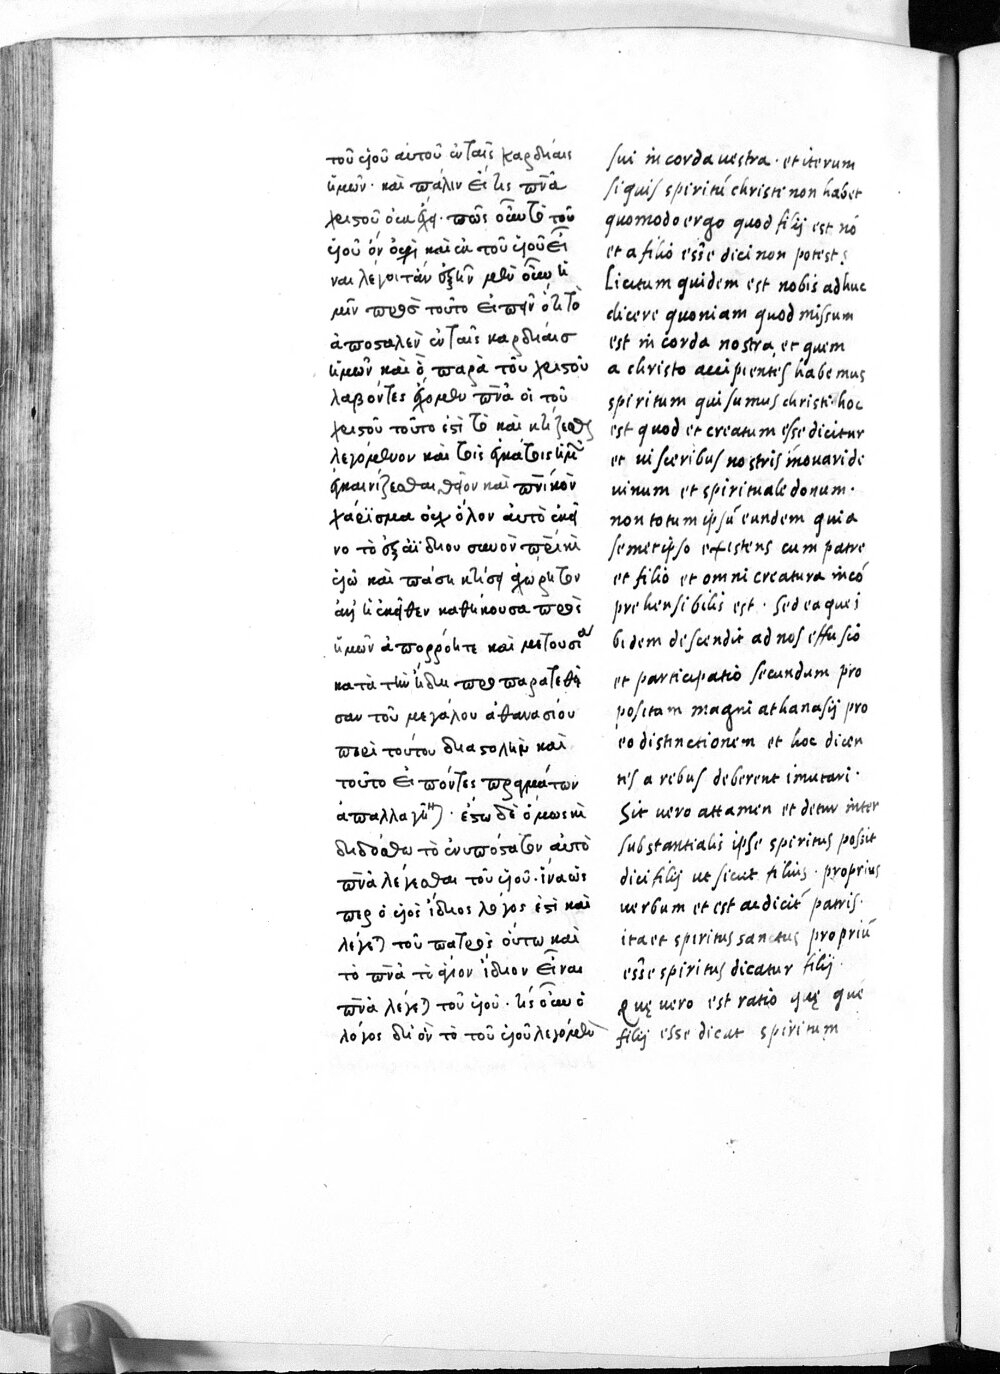 τοῦ υἱοῦ αὐτοῦ ἐν ταῖς καρδίαις
ὑμῶν· καὶ πάλιν εἴ τις πν̅α
χριστοῦ οὐκ ἔχει· πῶς οὖν τὸ τοῦ
υἱοῦ ὂν οὐχὶ καὶ ἐκ τοῦ υἱοῦ εἶ
ναι λέγοιτ' ἂν ἔξην μὲν οὖν ἡ
μῖν πρὸς τοῦτο εἰπεῖν ὅτι τὸ
ἀποσταλὲν ἐν ταῖς καρδίαις
ἡμῶν καὶ ὃ παρὰ τοῦ χριστοῦ
λαβόντες ἔχομεν πν̅α οἱ τοῦ
χριστοῦ τοῦτό ἐστι τὸ καὶ κτίζεσθαι
λεγόμενον καὶ τοῖς ἐγκάτοις ἡμῶν
ἐγκαινίζεσθαι, θεῖον καὶ πν̅ικὸν
χάρισμα οὐχ ὅλον αὐτὸ ἐκεῖ
νο τὸ ἐξ ἀϊδίου συνὸν πατρὶ καὶ
υἱῷ καὶ πάσῃ κτίσει ἀχώρητον
ἀλλ' ἡ ἐκεῖθεν καθήκουσα πρὸς
ἡμῶν ἀπορρόη τε καὶ μετουσία
κατὰ τὴν ἤδη προπαρατεθεῖ
σαν τοῦ μεγάλου ἀθανασίου
περὶ τούτου διαστολὴν καὶ
τοῦτο εἰπόντες πραγμάτων
ἀπαλλαγῆν)· ἔστω δὲ ὅμως καὶ
δεδόσθω τὸ ἐνυπόστατον αὐτὸ
πν̅α λέγεσθαι τοῦ υἱοῦ· ἵνα ὥς
περ ὁ υἱὸς ἴδιος λόγος ἐστὶ καὶ
λέγε) τοῦ πατρὸς οὕτω καὶ
τὸ πν̅α τὸ ἅγιον ἴδιον εἶναι
πν̅α λέγε) τοῦ υἱοῦ· τίς οὖν ὁ
λόγος δι' ὃν τὸ τοῦ υἱοῦ λεγόμενον
sui in corda uestra · et iterum
si quis spiritū christi non habet
quomodo ergo quod filij est nō
et a filio esse dici non potest;
Licitum quidem est nobis adhuc
dicere quoniam quod missum
est in corda nostra, et quem
a christo accipientes habemus
spiritum qui sumus christi· hoc
est quod et creatum esse dicitur
et uisceribus nostris innouari di
uinum et spirituale donum·
non totum ipsū eundem quia
semetipso existens cum patre
et filio et omni creatura incō
prehensibilis est · sed ea que i
bidem descendit ad nos effusio
et participatio secundum pro
positam magni athanasij pro
eo distinctionem et hoc dicen
tes a rebus deberent imutari·
Sit uero attamen et detur inter
substantialis ipse spiritus possit
dici filij ut sicut filius · proprius
uerbum et est ac dicit̄ patris·
ita et spiritus sanctus propriū
esse spiritus dicatur filij·
Quę uero est ratio quę que
filij esse dicat spiritum